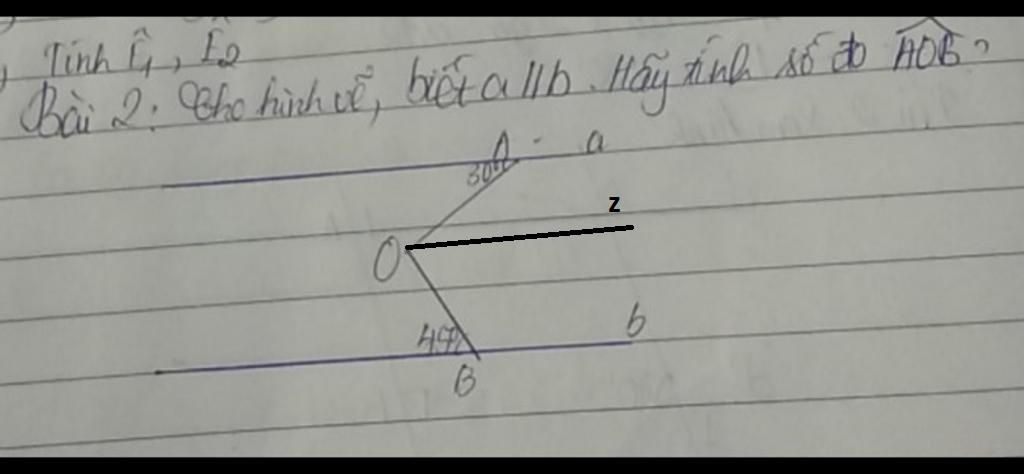 Tính Ê₁, Ê₂
Bài 2: Cho hình vẽ, biết a // b. Hãy tính số đo AOB?
A a
30°
z
O
b
45°
B